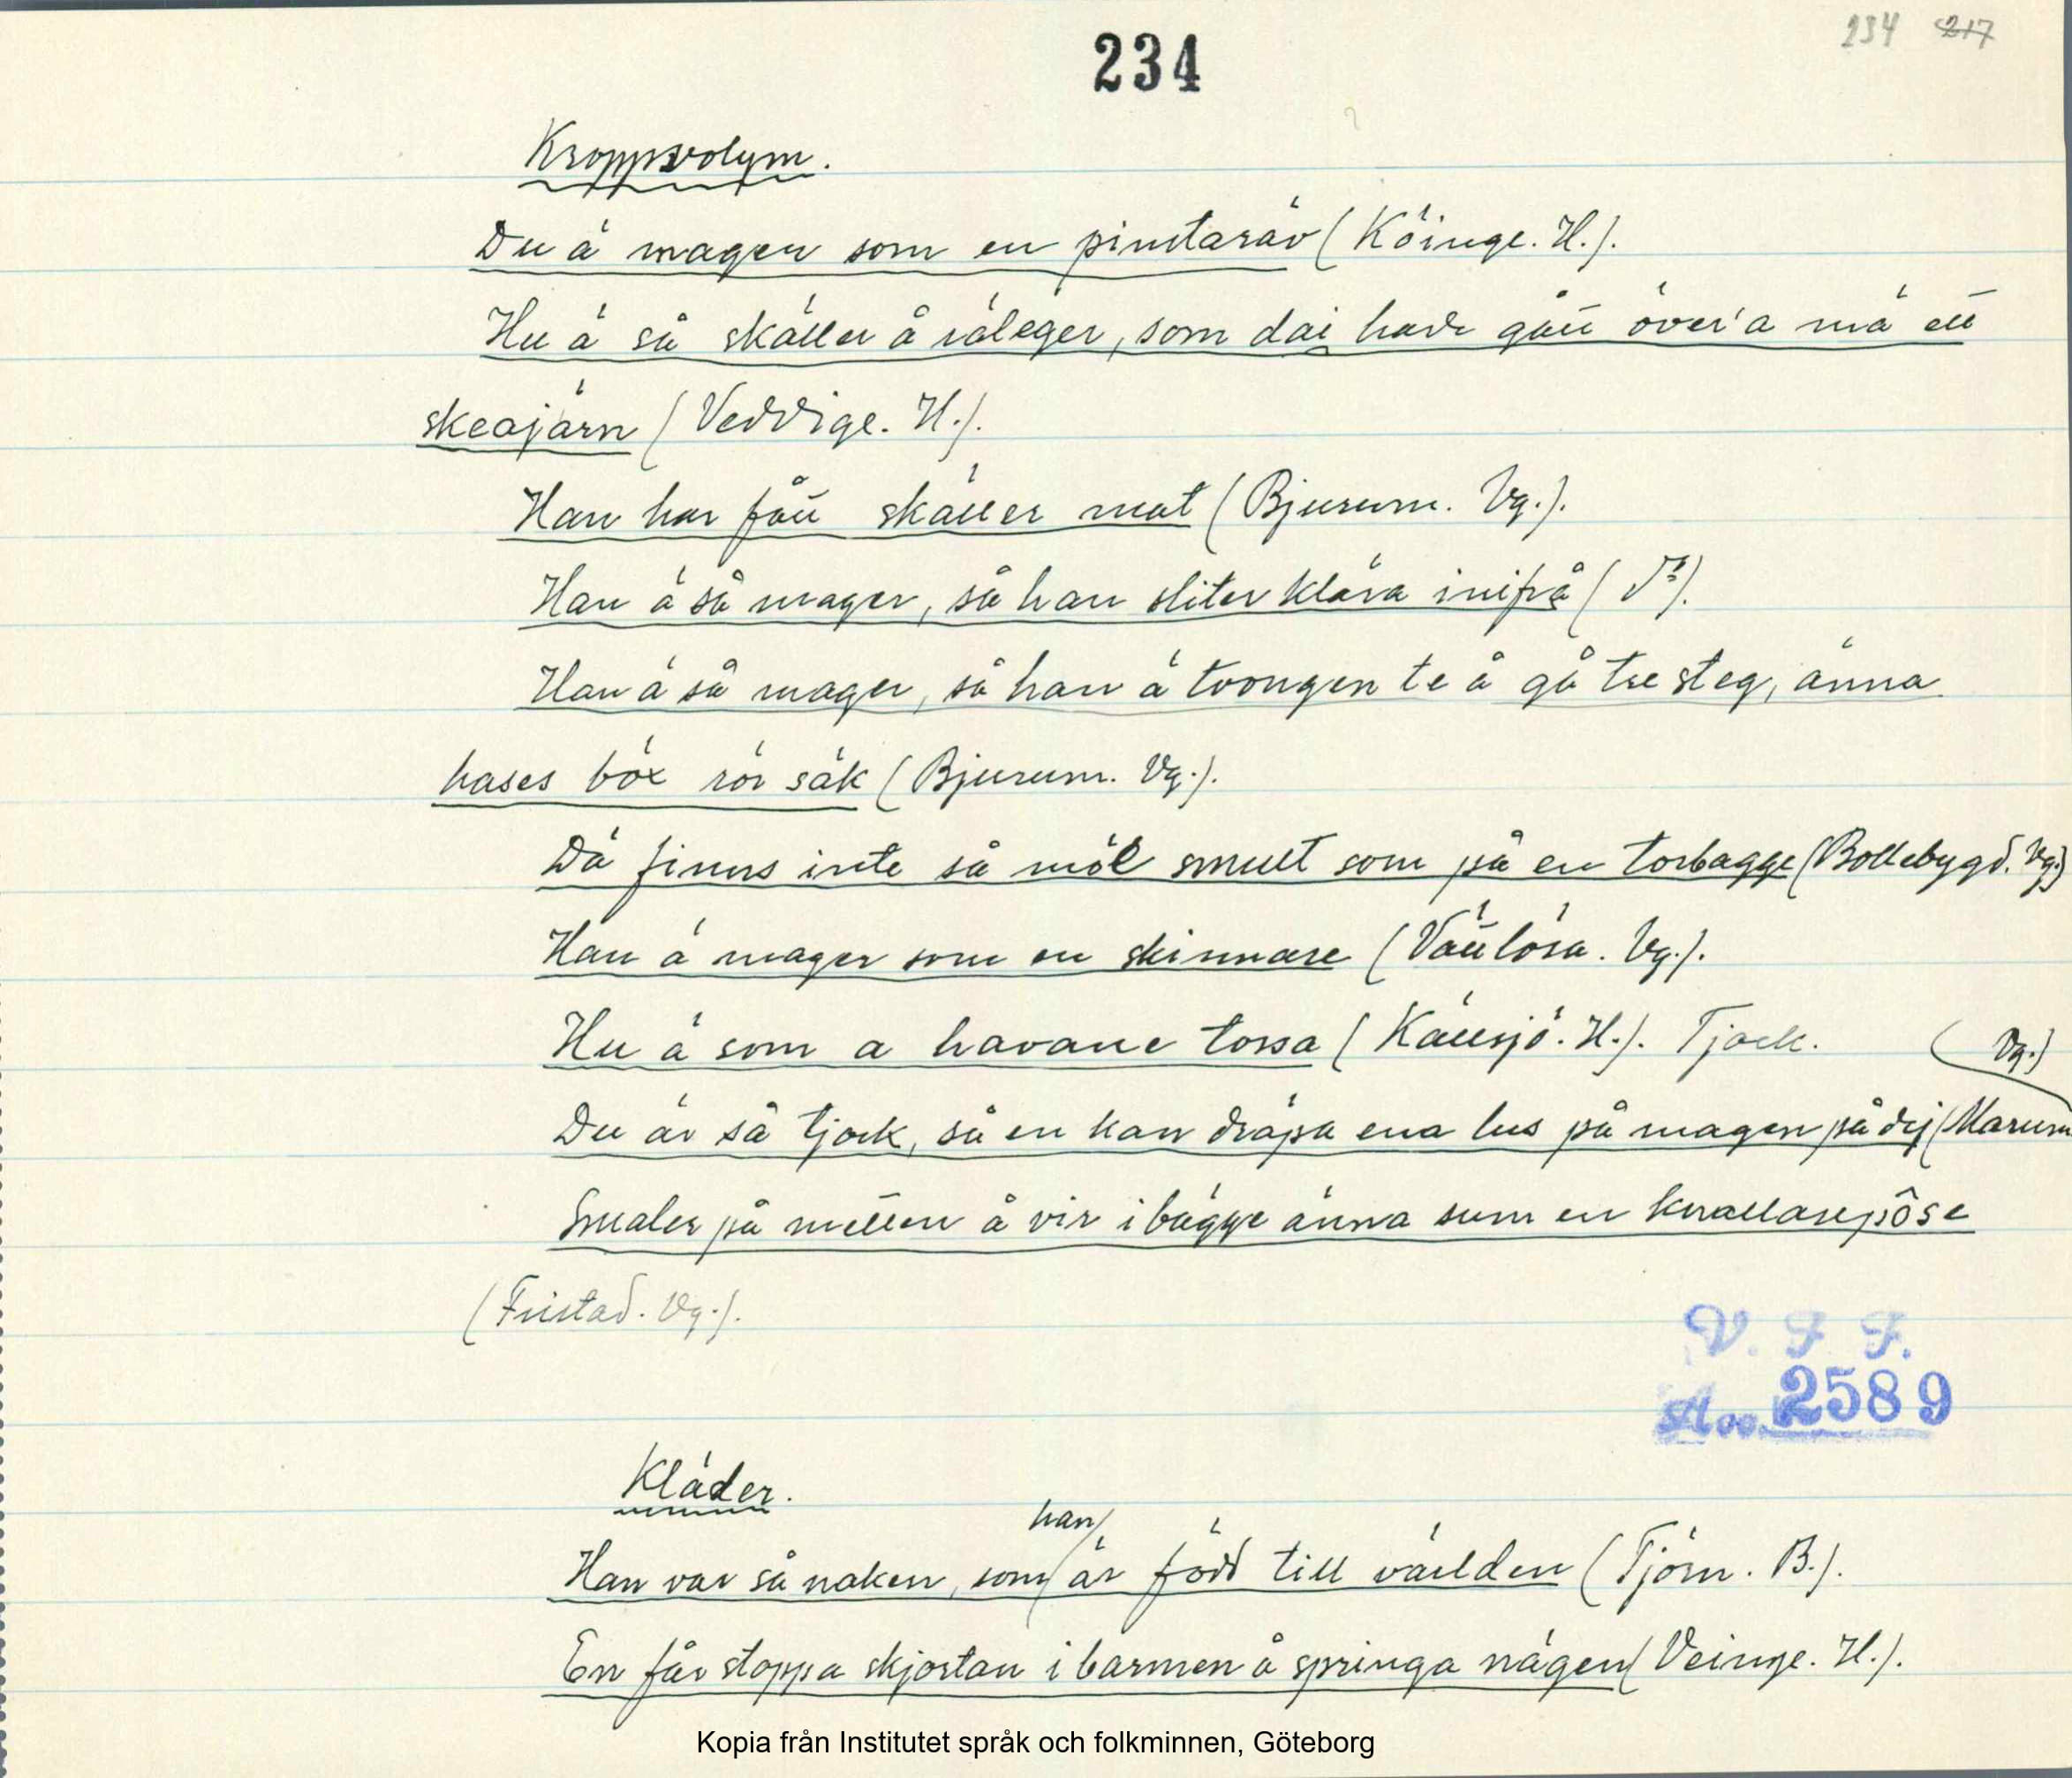 234 217
234
Kroppsvolym.
Du ä mager som en pinntaräv (Köinge. H.).
Hu ä så skäller å räleger, som dai hade gått över'a mä ett
skeajärn (Veddige. H.).
Han har fått skäller mat (Bjurum. Vg.).
Han ä så mager, så han sliter klära inifrå (
Han ä så mager, så han ä tvongen te å gå tre steg, änna
hases böx rör säk (Bjurum. Vg.).
Dä finns inte så möe smult som på en torbagge (Bollebygd. Vg.)
Han ä mager som en skinnare (Vättlösa. Vg.).
Hu ä som a havane tossa (Källsjö. H.). Tjock.
(Vg.)
Du är så tjock, så en kan dräpa ena lus på magen på dij (Marum
Smaler på mitten å vir i bägge änna sum en knallarepôse
(Fristad. Vg.).
V. F. F.
Acc. 2589
Kläder.
han
Han var så naken, som är född till världen (Tjörn. B.).
En får stoppa skjortan i barmen å springa nägen (Veinge. H.).
Kopia från Institutet språk och folkminnen, Göteborg